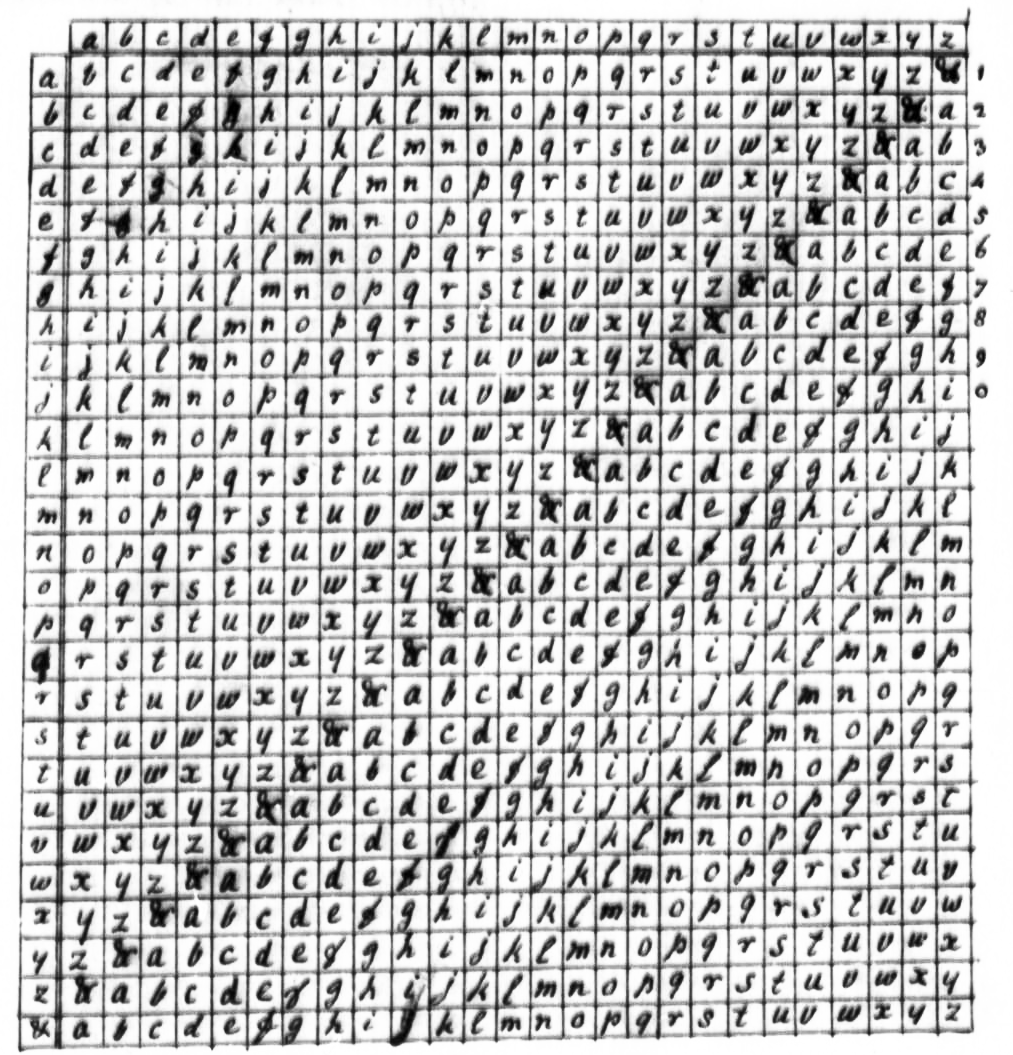 a b c d e f g h i j k l m n o p q r s t u v w x y z
a b c d e f g h i j k l m n o p q r s t u v w x y z & 1
b c d e f g h i j k l m n o p q r s t u v w x y z & a 2
c d e f g h i j k l m n o p q r s t u v w x y z & a b 3
d e f g h i j k l m n o p q r s t u v w x y z & a b c 4
e f g h i j k l m n o p q r s t u v w x y z & a b c d 5
f g h i j k l m n o p q r s t u v w x y z & a b c d e 6
g h i j k l m n o p q r s t u v w x y z & a b c d e f 7
h i j k l m n o p q r s t u v w x y z & a b c d e f g 8
i j k l m n o p q r s t u v w x y z & a b c d e f g h 9
j k l m n o p q r s t u v w x y z & a b c d e f g h i 0
k l m n o p q r s t u v w x y z & a b c d e f g h i j
l m n o p q r s t u v w x y z & a b c d e f g h i j k
m n o p q r s t u v w x y z & a b c d e f g h i j k l
n o p q r s t u v w x y z & a b c d e f g h i j k l m
o p q r s t u v w x y z & a b c d e f g h i j k l m n
p q r s t u v w x y z & a b c d e f g h i j k l m n o
q r s t u v w x y z & a b c d e f g h i j k l m n o p
r s t u v w x y z & a b c d e f g h i j k l m n o p q
s t u v w x y z & a b c d e f g h i j k l m n o p q r
t u v w x y z & a b c d e f g h i j k l m n o p q r s
u v w x y z & a b c d e f g h i j k l m n o p q r s t
v w x y z & a b c d e f g h i j k l m n o p q r s t u
w x y z & a b c d e f g h i j k l m n o p q r s t u v
x y z & a b c d e f g h i j k l m n o p q r s t u v w
y z & a b c d e f g h i j k l m n o p q r s t u v w x
z & a b c d e f g h i j k l m n o p q r s t u v w x y
& a b c d e f g h i j k l m n o p q r s t u v w x y z